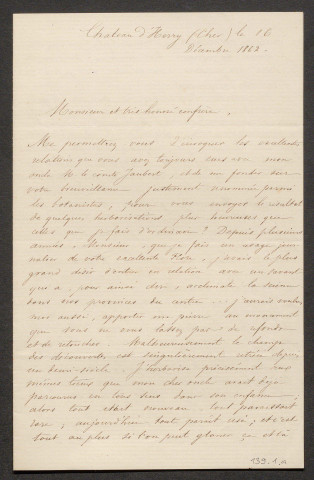 Chateau d'Herry (Cher) le 16
Décembre 1882.
Monsieur et très honoré confrère,
Me permettrez vous d'invoquer les excellentes
relations que vous avez toujours eues avec mon
oncle M. le comte Jaubert, et de me fonder sur
votre bienveillance justement renommée parmi
les botanistes, pour vous envoyer le résultat
de quelques herborisations plus heureuses que
celles que je fais d'ordinaire ? Depuis plusieurs
années, Monsieur, que je fais un usage jour
nalier de votre excellente Flore, j'avais le plus
grand désir d'entrer en relation avec un savant
qui a, pour ainsi dire, acclimaté la science
dans nos provinces du centre. J'aurais voulu,
moi aussi, apporter ma pierre au monument
que vous ne vous lassez pas de refondre
et de retoucher. Malheureusement le champ
des découvertes est singulièrement rétréci depuis
un demi-siècle. J'herborise précisément aux
mêmes lieux que mon cher oncle avait déjà
parcourus en tous sens dans son enfance ;
alors tout était nouveau, tout paraissait
rare ; aujourd'hui tout paraît usé ; et c'est
tout au plus si l'on peut glaner çà et là
139.1.n